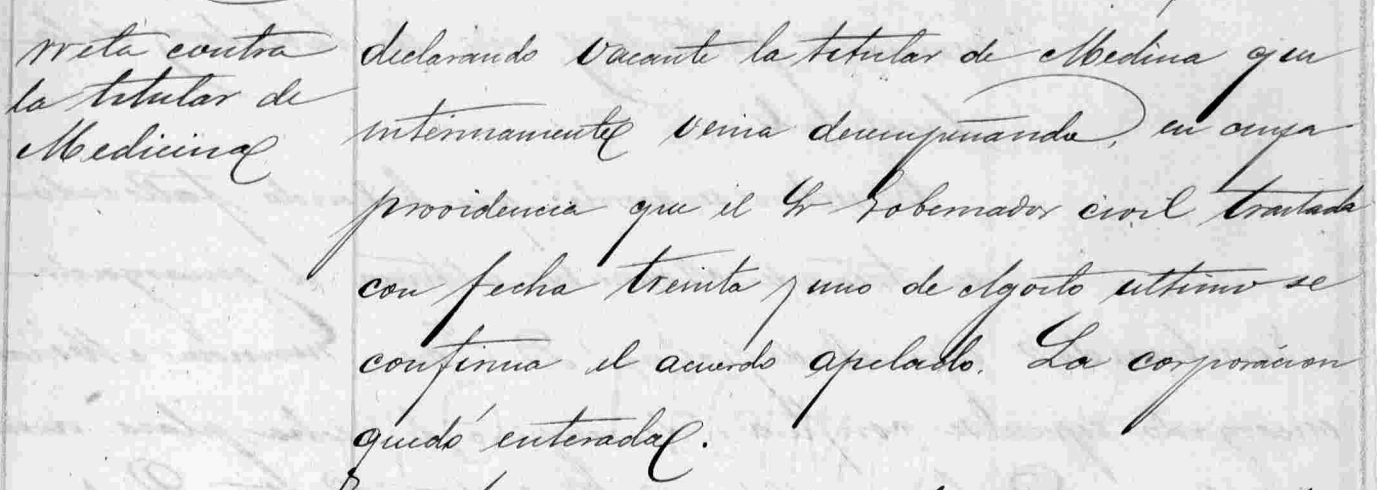 contra
la titular de
Medicina
declarando vacante la titular de Medina que
interinamente venia desempeñando, en cuya
providencia que el Sr Gobernador civil traslada
con fecha treinta y uno de Agosto ultimo se
confirma el acuerdo apelado. La corporacion
quedó enterada.